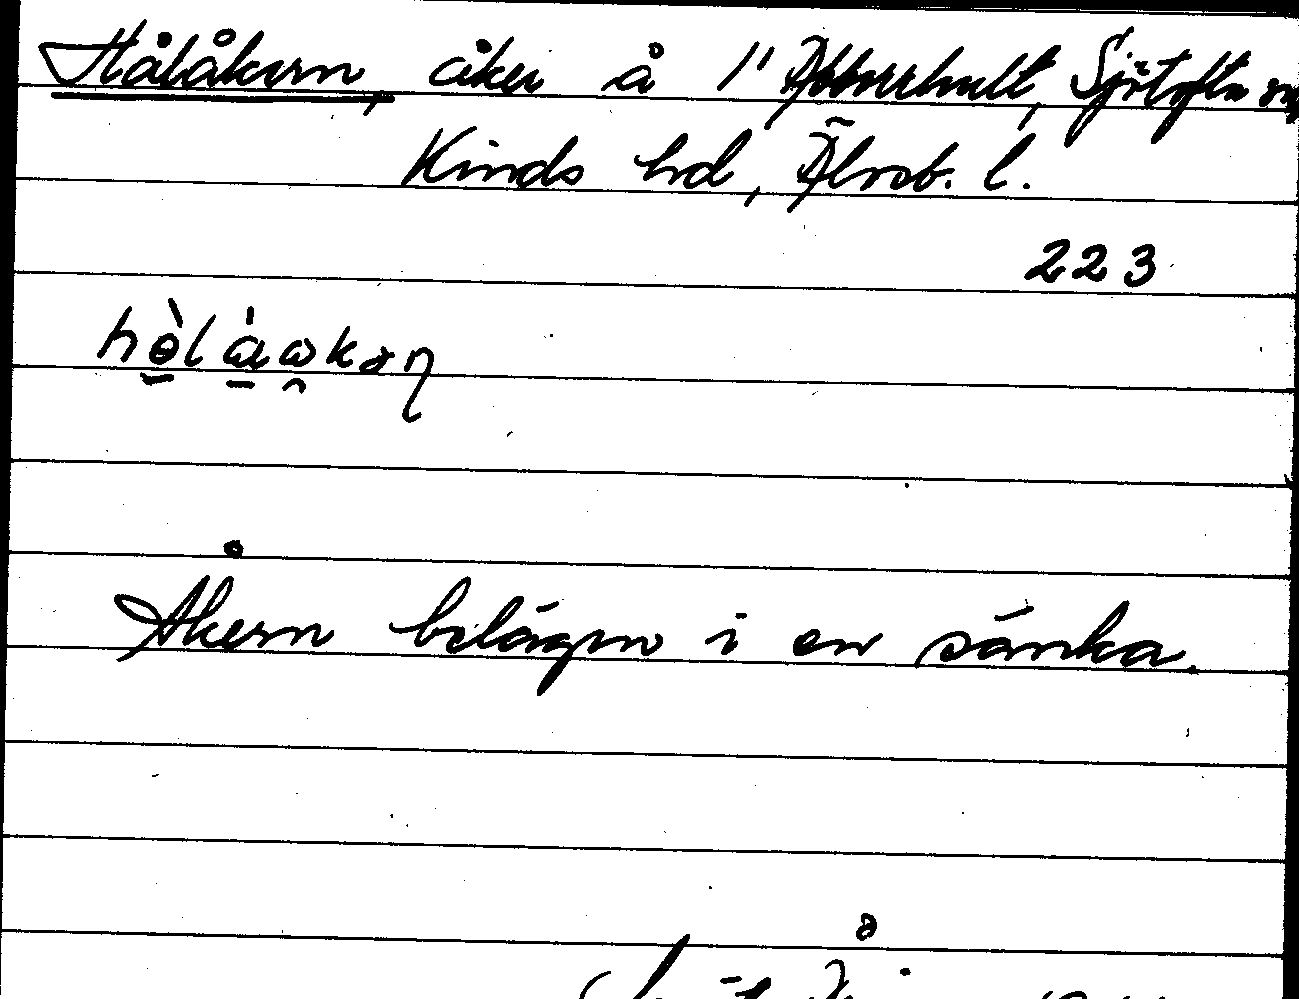 Hålåkern, åker å 1" Abborrhult, Sjötofta sn
Kinds hd, Älvsb. l.
223
Åkern belägen i en sänka.